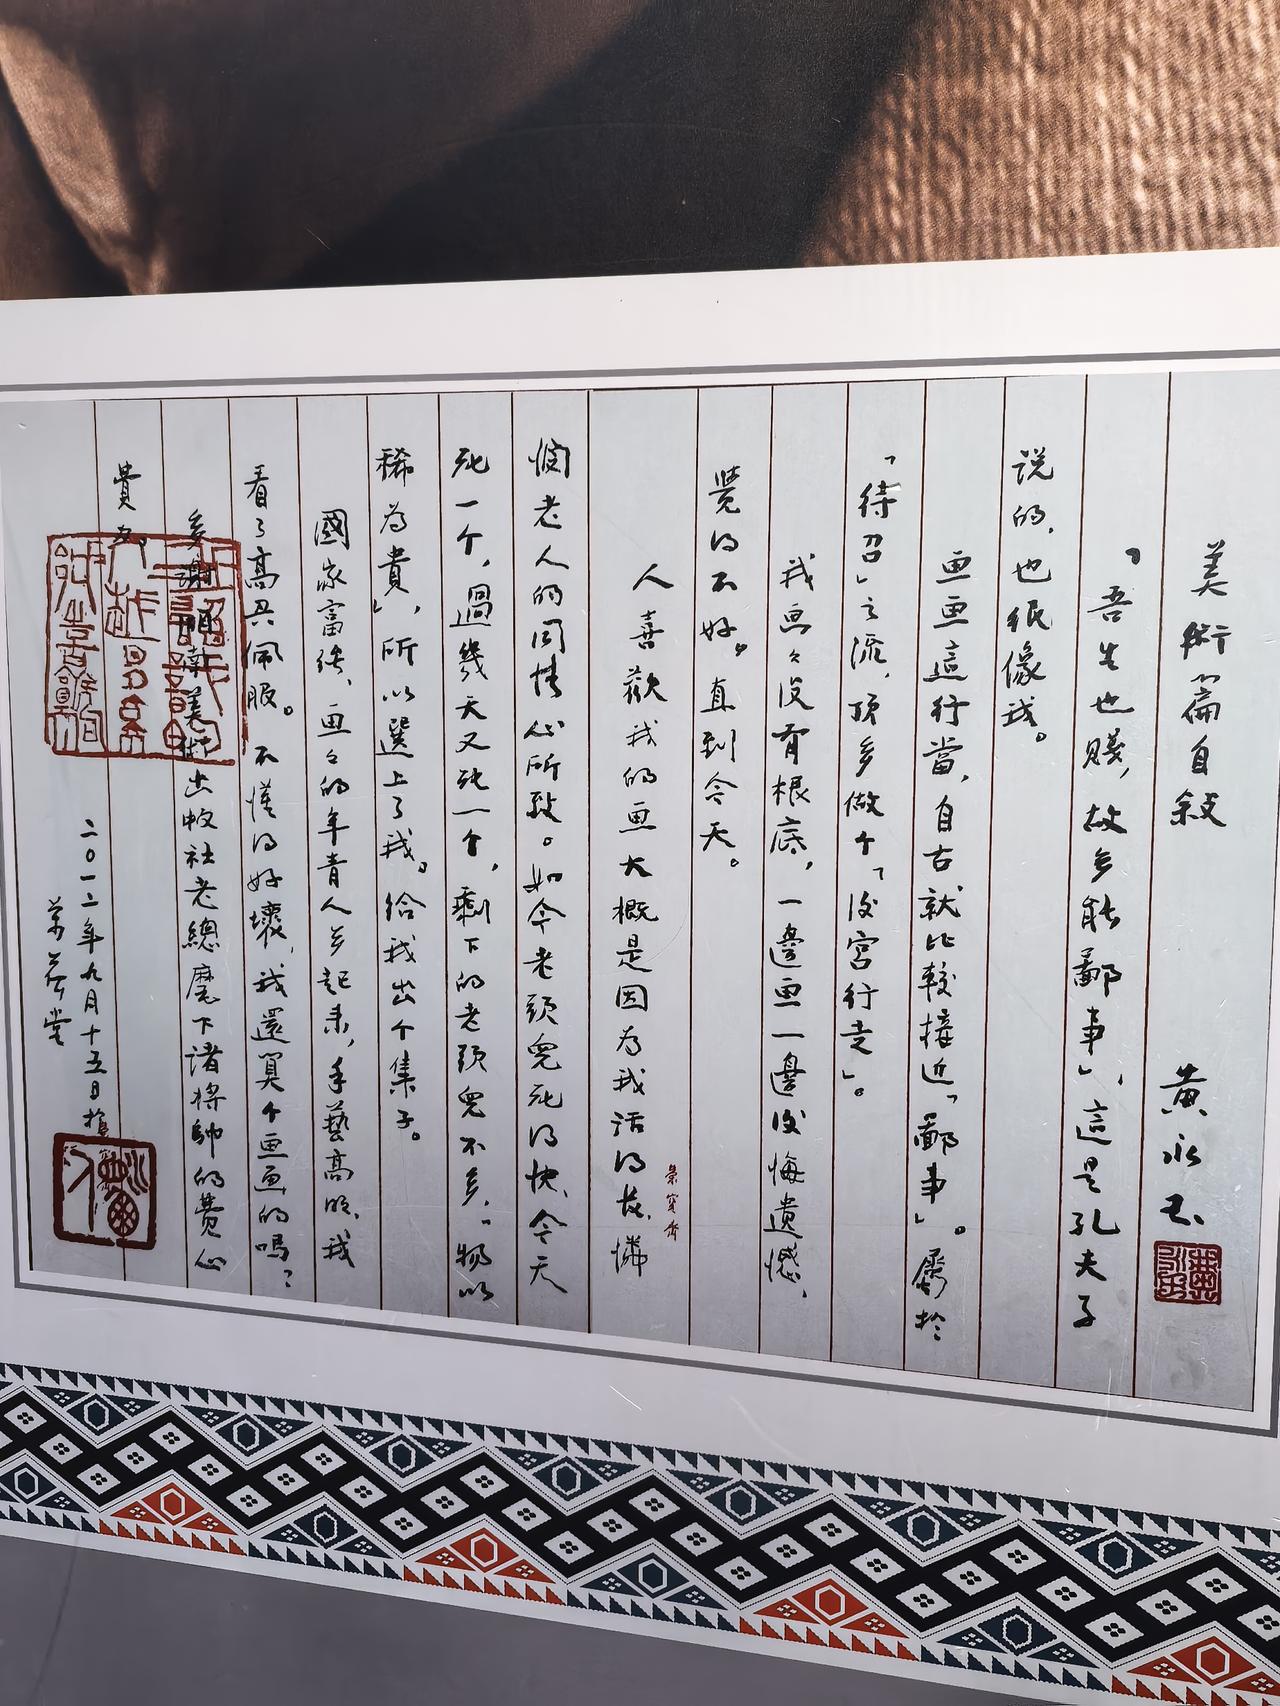 美術篇自敘
黄永玉
「吾生也賤，故多能鄙事」，這是孔夫子
説的，也很像我。
画画這行當，自古就比較接近「鄙事」。屬於
「待召」之流，頂多做个「後宮行走」。
我画々没有根底，一邊画一邊後悔遺憾，
覺得不好。直到今天。
人喜歡我的画大概是因為我活得长，憐
憫老人的同情心所致。如今老頭兒死得快，今天
死一个，過幾天又死一个，剩下的老頭兒不多，“物以
稀為貴”，所以選上了我。給我出个集子。
國家富強、画々的年青人多起来，手藝高明，我
看了高興佩服。不懂得好壞，我還算个画画的嗎？
多謝湖南美術出版社老總麾下諸将帥的費心
費力。
二〇一二年九月十五日於
萬荷堂
榮寳齋